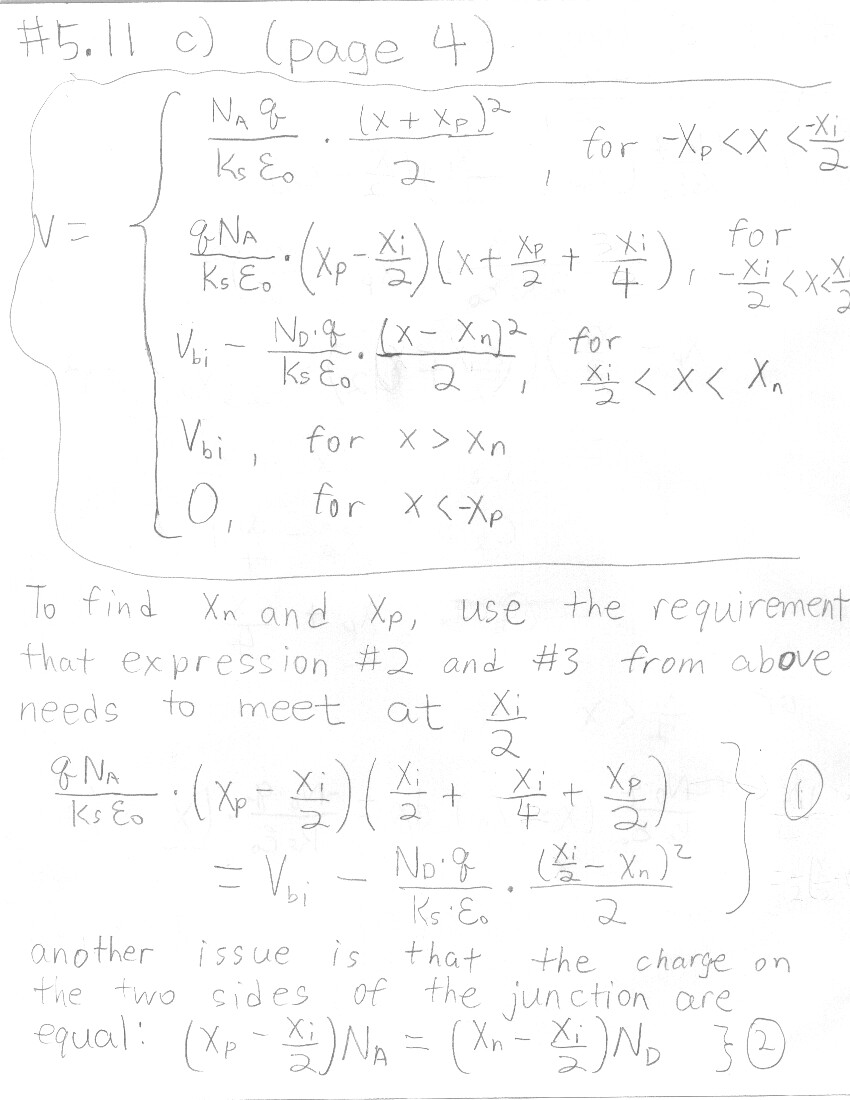 #5.11 c) (page 4)
V =
N_A q / K_s ε_0 · (x + x_p)^2 / 2 , for -x_p < x < -x_i/2
q N_A / K_s ε_0 · (x_p - x_i/2)(x + x_p/2 + x_i/4) , for -x_i/2 < x < x_i/2
V_bi - N_D·q / K_s ε_0 · (x - x_n)^2 / 2 , for x_i/2 < x < x_n
V_bi , for x > x_n
0, for x < -x_p
To find x_n and x_p, use the requirement
that expression #2 and #3 from above
needs to meet at x_i/2
q N_A / K_s ε_0 · (x_p - x_i/2)(x_i/2 + x_i/4 + x_p/2) } ①
= V_bi - N_D·q / K_s·ε_0 · (x_i/2 - x_n)^2 / 2
another issue is that the charge on
the two sides of the junction are
equal: (x_p - x_i/2)N_A = (x_n - x_i/2)N_D } ②